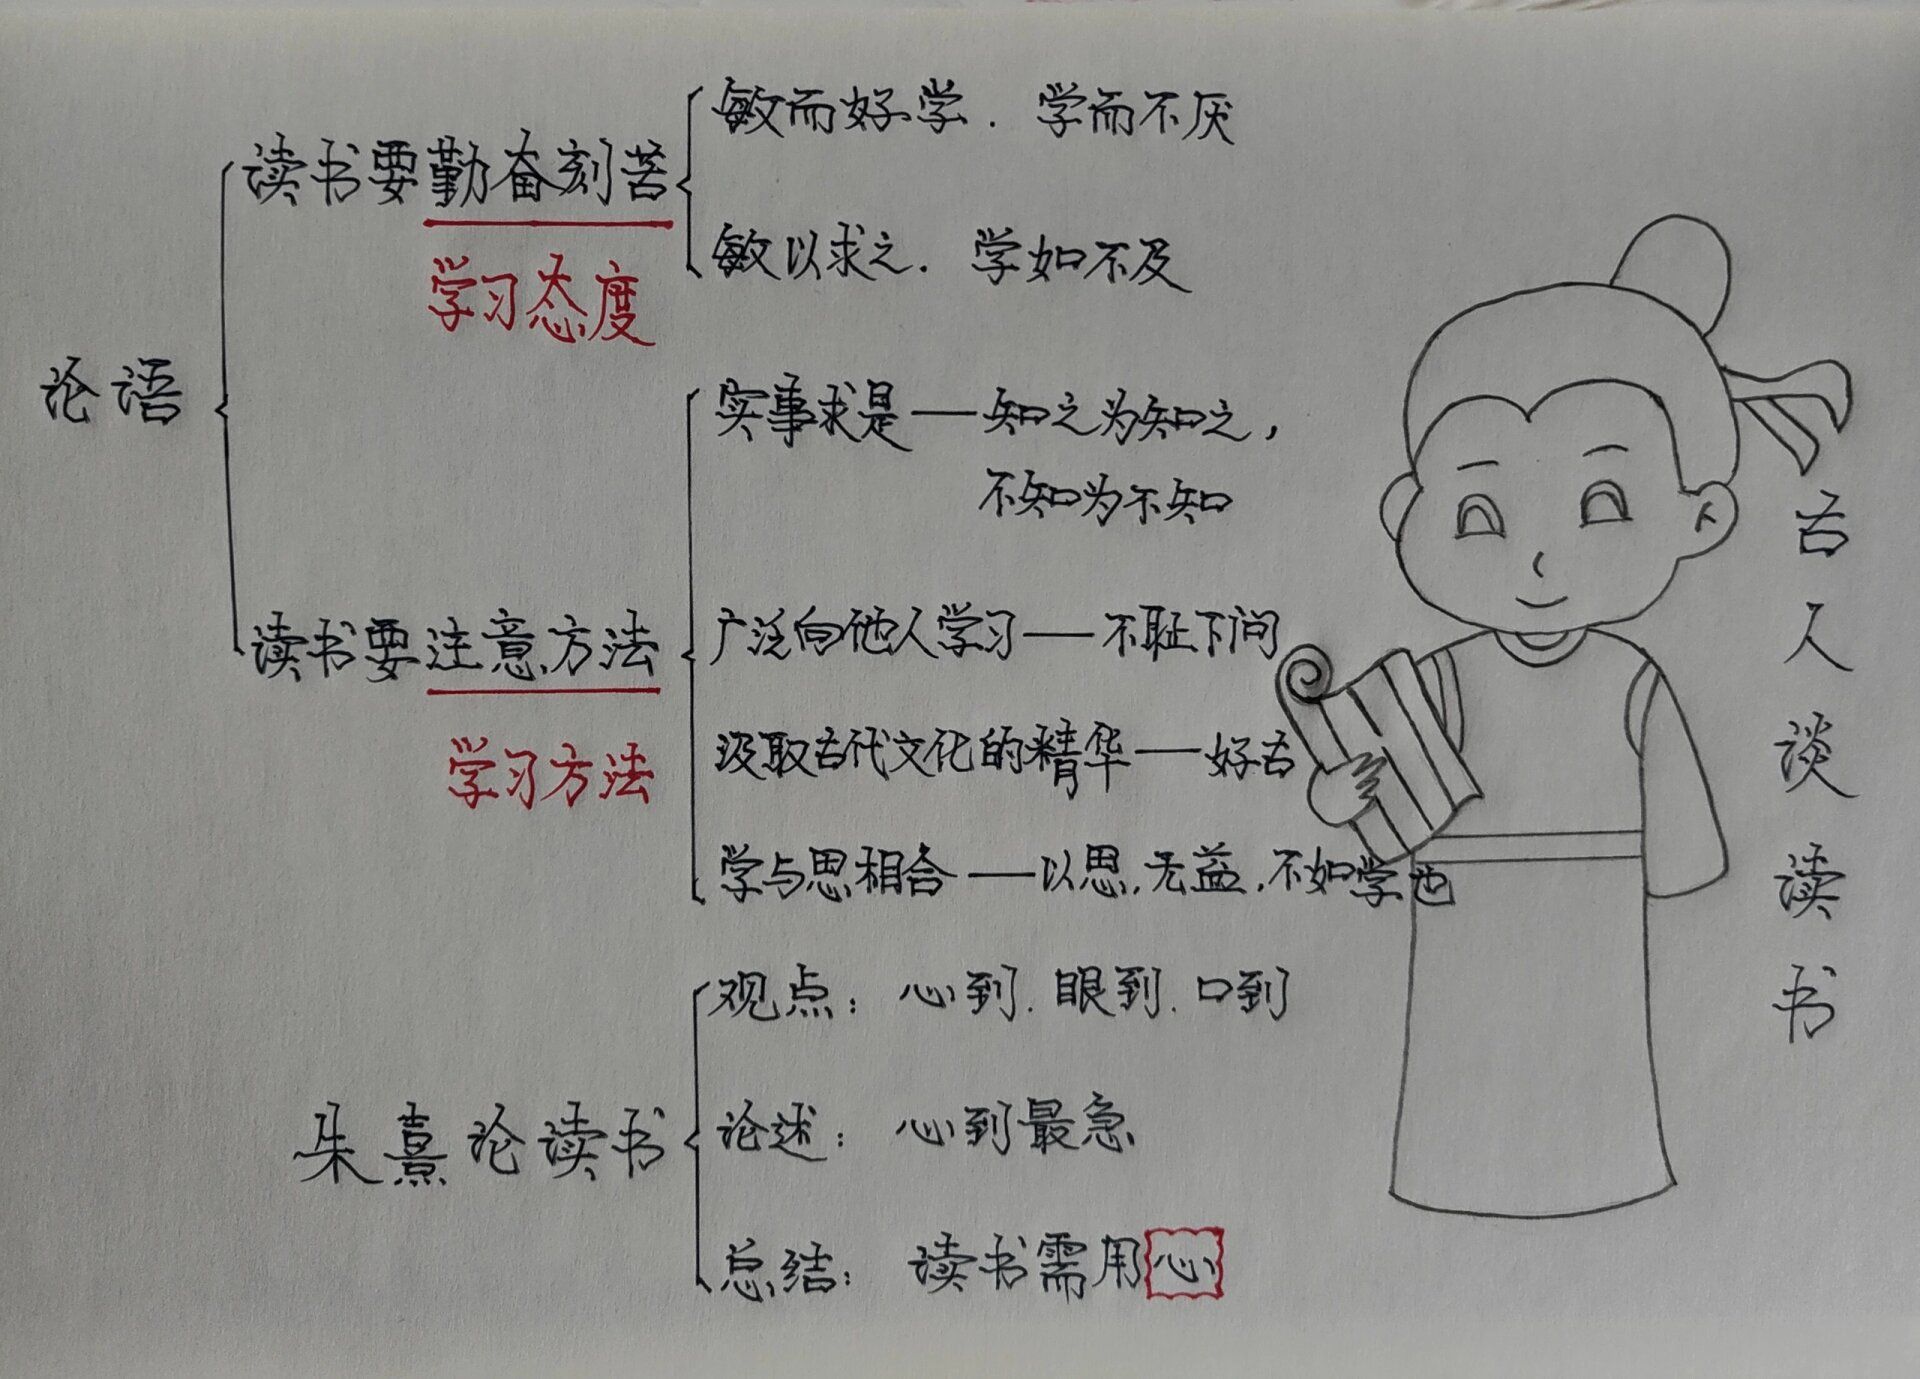 论语
读书要勤奋刻苦
学习态度
敏而好学.学而不厌
敏以求之.学如不及
读书要注意方法
学习方法
实事求是——知之为知之，
不知为不知
广泛向他人学习——不耻下问
汲取古代文化的精华——好古
学与思相合——以思,无益,不如学也
朱熹论读书
观点：心到.眼到.口到
论述：心到最急
总结：读书需用心
古人谈读书